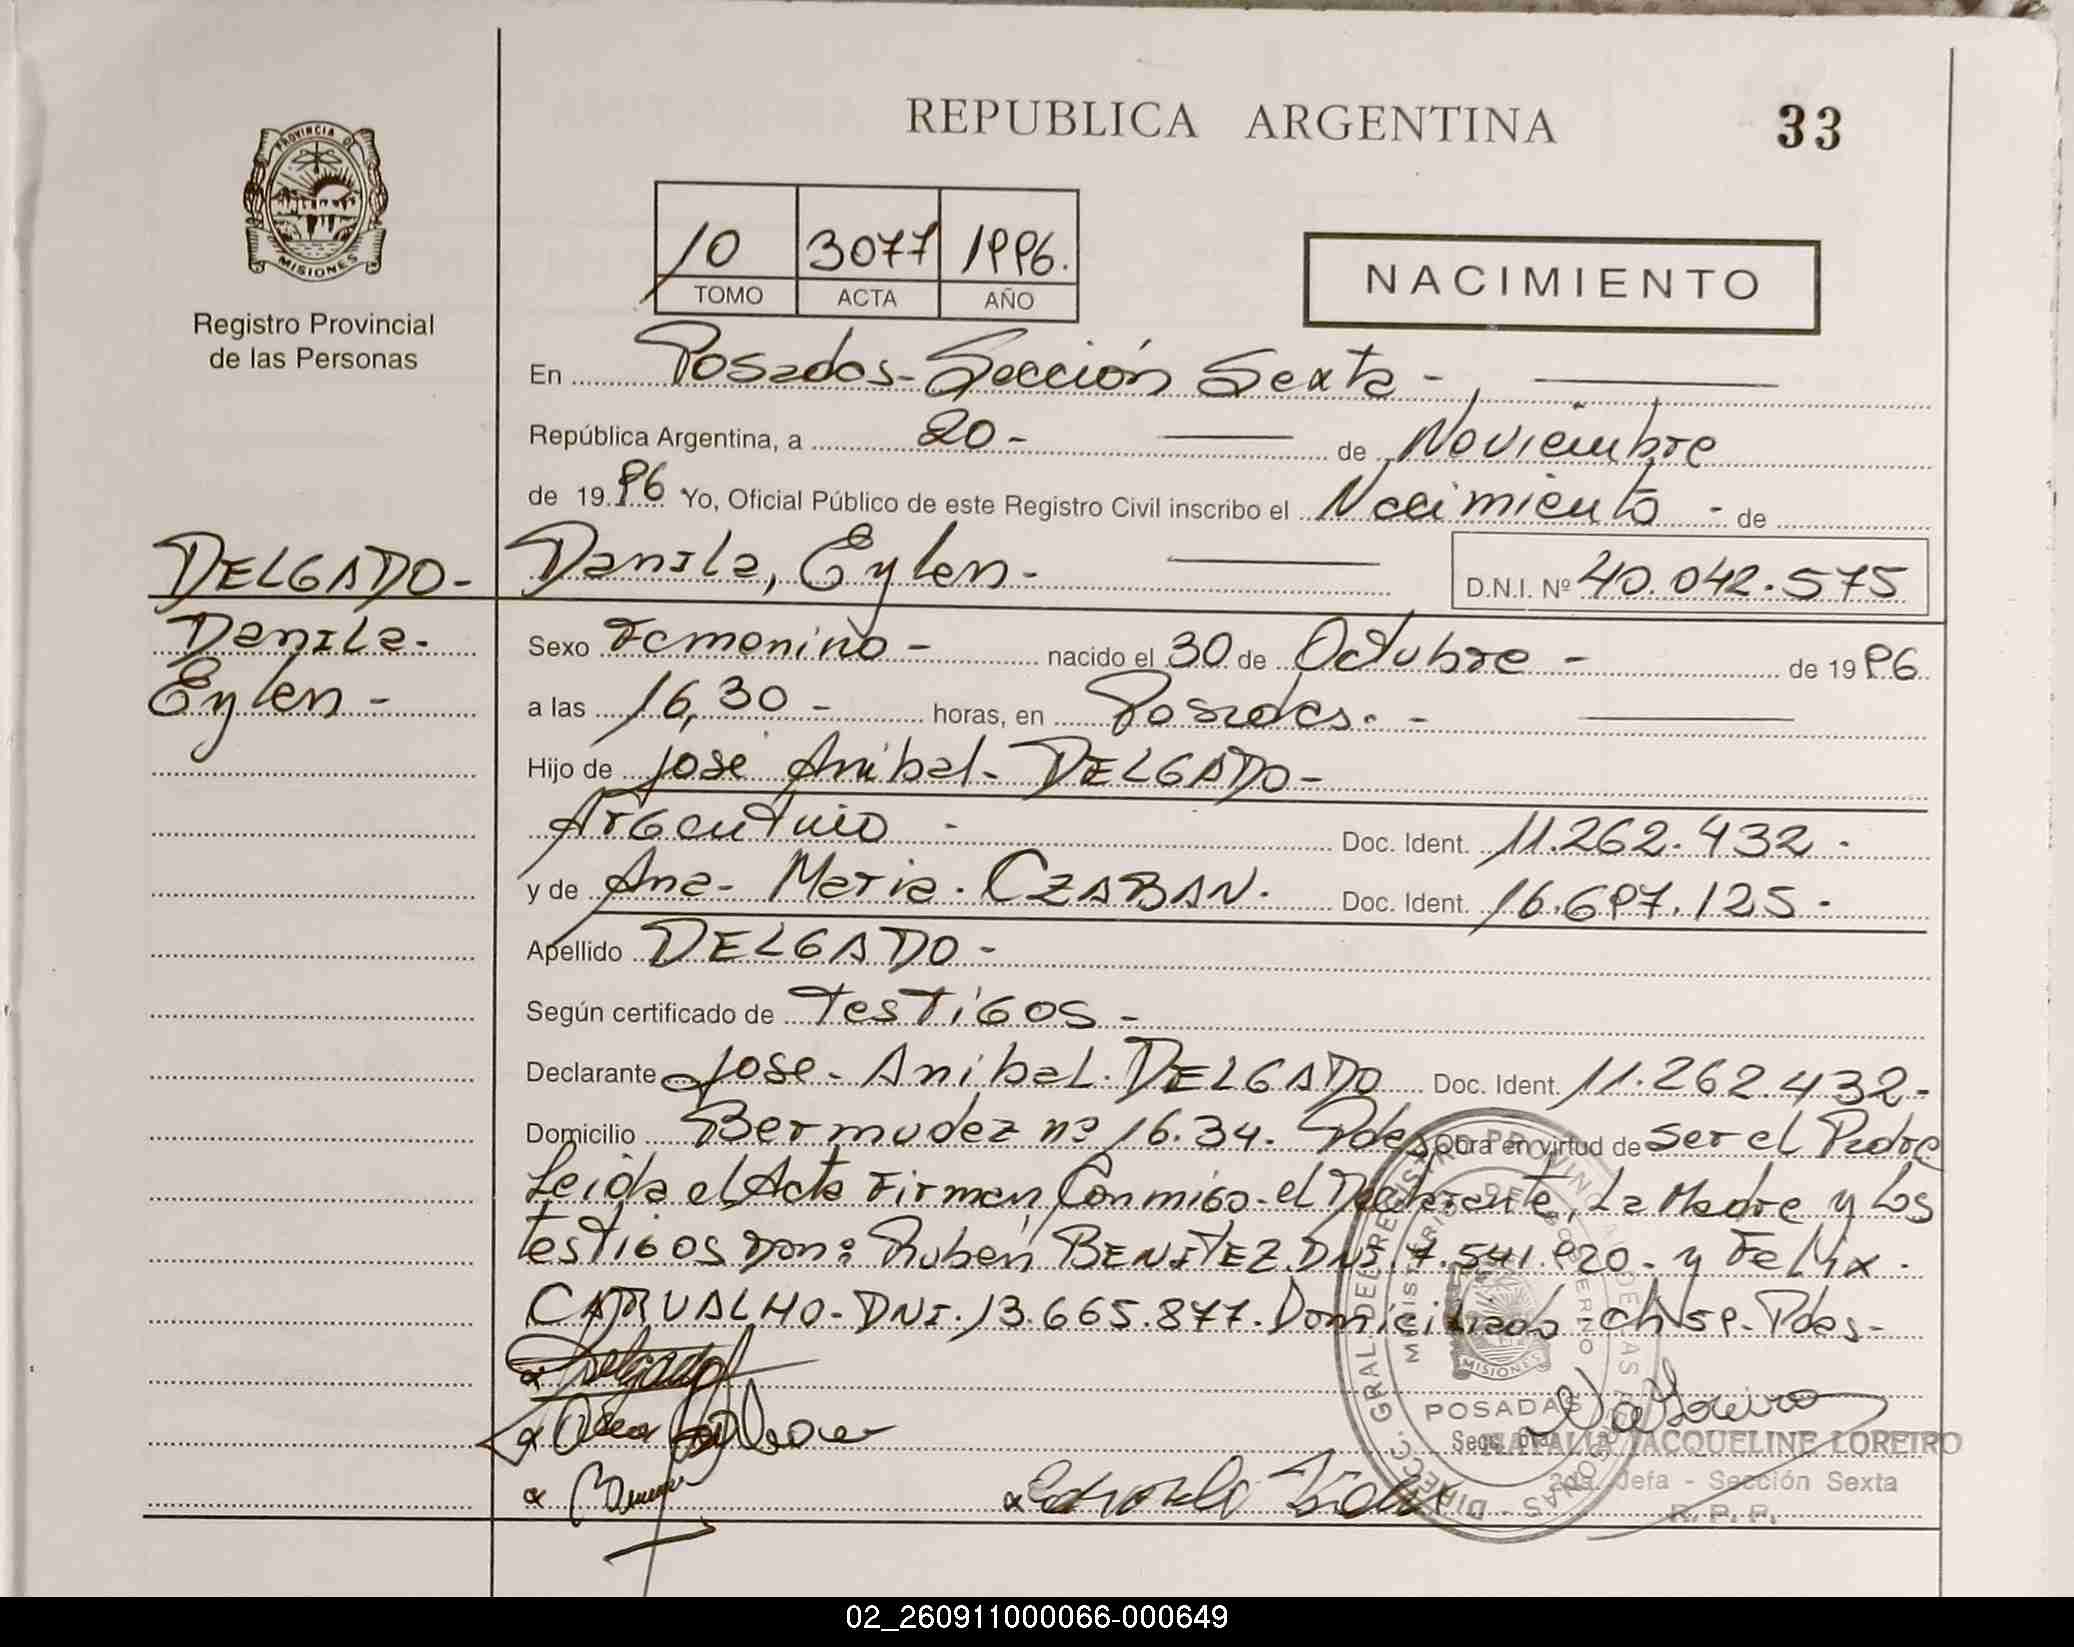 REPUBLICA ARGENTINA
33
PROVINCIA DE
MISIONES
Registro Provincial
de las Personas
10 3077 1996.
TOMO ACTA AÑO
NACIMIENTO
En Posadas - Sección Sexta -
República Argentina, a 20 - de Noviembre
de 19 96 Yo, Oficial Público de este Registro Civil inscribo el Nacimiento - de
DELGADO - Danila, Eylen - D.N.I. Nº 40.042.575
Danila -
Eylen -
Sexo Femenino - nacido el 30 de Octubre - de 19 96
a las 16,30 - horas, en Posadas. -
Hijo de José Anibal - DELGADO -
Argentino - Doc. Ident. 11.262.432 -
y de Ana - Maria - CZABAN. Doc. Ident. 16.697.125 -
Apellido DELGADO -
Según certificado de Testigos -
Declarante Jose - Anibal. DELGADO Doc. Ident. 11.262.432 -
Domicilio Bermudez nº 16.34. Pdas Obra en virtud de Ser el Padre
Leida el Acta Firman Conmigo el Declarante, La Madre y Los
testigos Don: Ruben BENITEZ. DNI. 7.541.920 - y Felix -
CARVALHO - DNI. 13.665.877. Domiciliado - ch 59 - Pdas -
Delgado
DIRECC. GRAL DEL REGISTRO PROVINCIAL DE LAS PERSONAS
MINISTERIO DE GOBIERNO
MISIONES
POSADAS
NATALIA JACQUELINE LOREIRO
2da. Jefa - Sección Sexta
R. P. P.
02_260911000066-000649